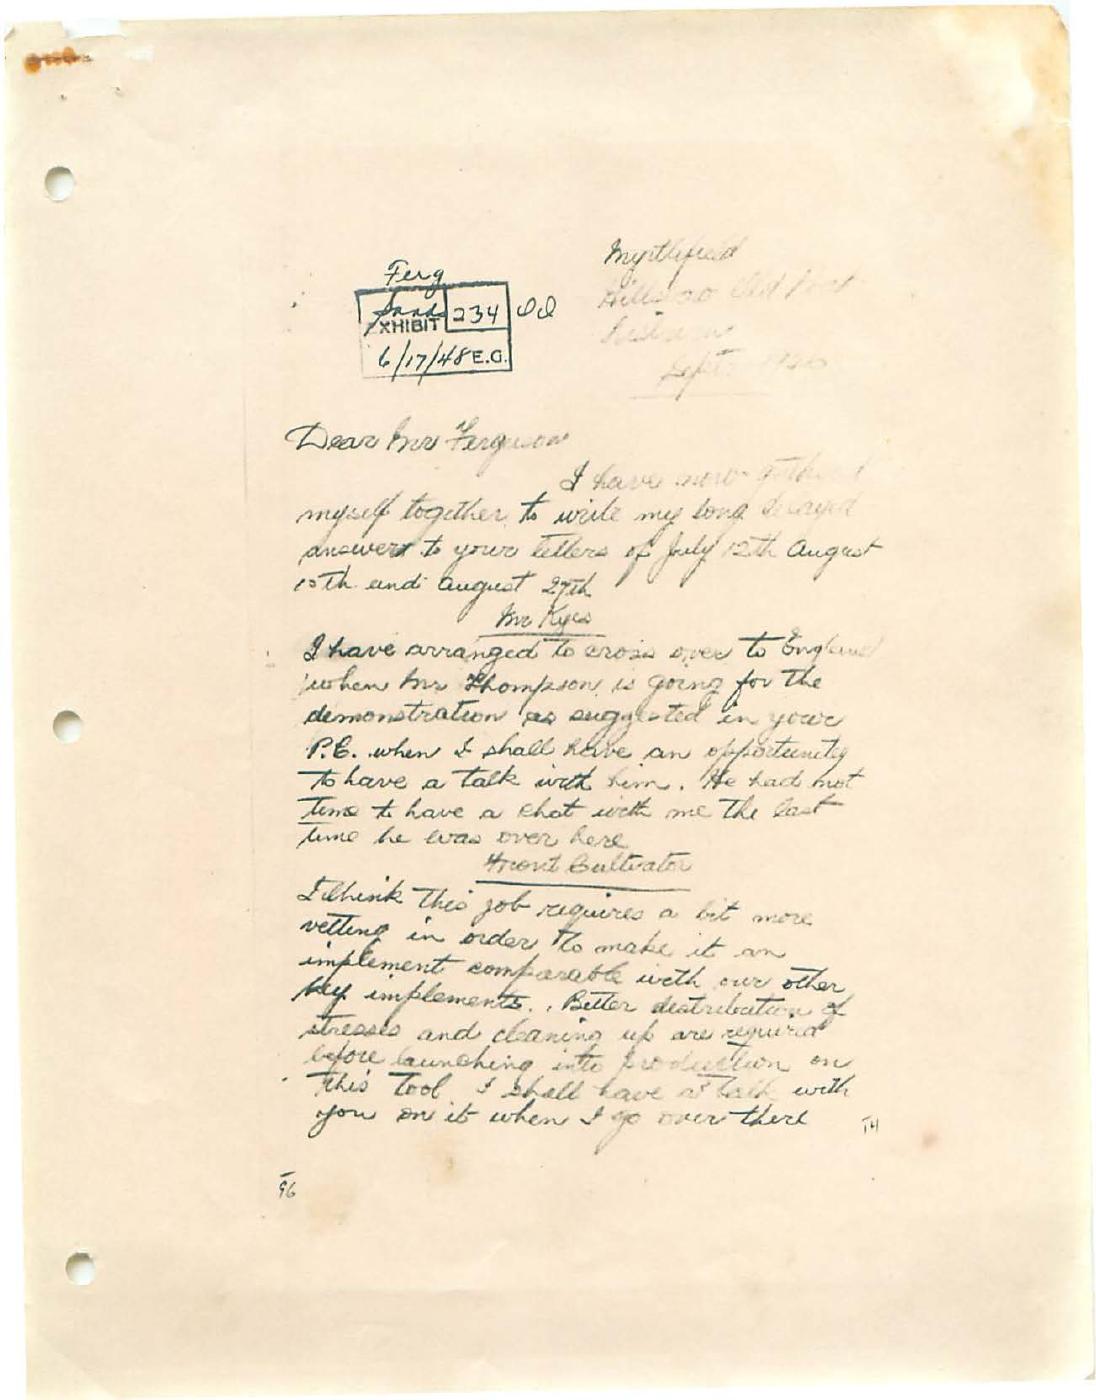 Ferg
Sands
EXHIBIT 234 DD
6/17/48 E.G.
Myrtlefield
Hillsboro Old Post
Lisburn
Sept
Dear Mr Ferguson
I have now gathered
myself together to write my long delayed
answer to your letters of July 12th August
15th and August 27th
Mr Kyes
I have arranged to cross over to England
when Mr Thompson is going for the
demonstration as suggested in your
P.C. when I shall have an opportunity
to have a talk with him. He had not
time to have a chat with me the last
time he was over here
Front Cultivator
I think this job requires a bit more
vetting in order to make it an
implement comparable with our other
key implements. Better distribution of
stresses and cleaning up are required
before launching into production on
this tool I shall have a talk with
you on it when I go over there
14
96